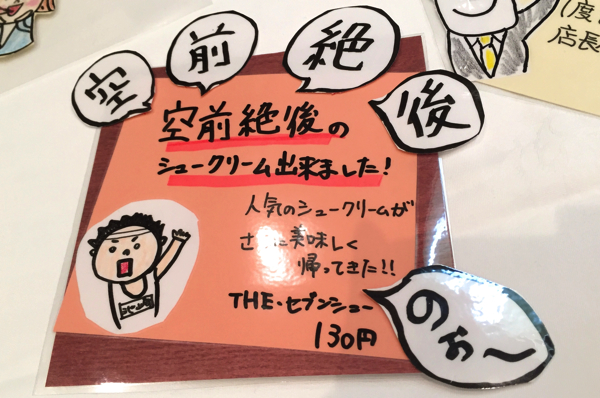 空
前
絶
後
空前絶後の
シュークリーム出来ました!
人気のシュークリームが
さらに美味しく
帰ってきた!!
THE・セブンシュー
130円
のぉ〜
(度
店長